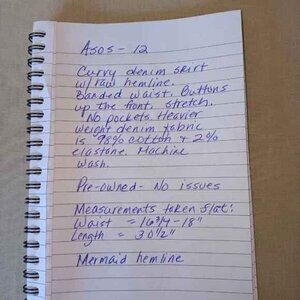 ASOS - 12
Curvy denim skirt
w/raw hemline.
Banded waist. Buttons
up the front, stretch.
No pockets. Heavier
weight denim fabric
is 98% cotton + 2%
elastane. Machine
wash.
Pre-owned - No issues
Measurements taken flat:
Waist = 16 3/4 - 18"
Length = 30 1/2"
Mermaid hemline